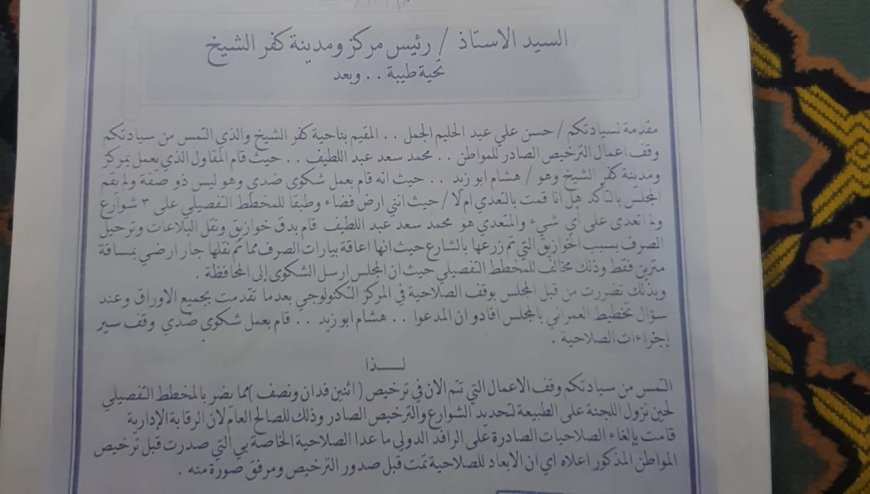 السيد الاستاذ / رئيس مركز ومدينة كفر الشيخ
تحية طيبة . . وبعد
مقدمة لسيادتكم / حسن علي عبد الحليم الجمل . . المقيم بناحية كفر الشيخ والذي التمس من سيادتكم
وقف اعمال الترخيص الصادر للمواطن . . محمد سعد عبد اللطيف . . حيث قام المقاول الذي يعمل بمركز
ومدينة كفر الشيخ وهو / هشام ابو زيد . . حيث انه قام بعمل شكوى ضدي وهو ليس ذو صفة ولم يقم
المجلس بالتأكد هل انا قمت بالتعدي ام لا / حيث انني ارض فضاء وطبقا للمخطط التفصيلي على ٣ شوارع
ولم اتعدى على أي شيء والمتعدي هو محمد سعد عبد اللطيف قام بدق خوازيق ونقل البلاعات وترحيل
الصرف بسبب الخوازيق التي تم زرعها بالشارع حيث انها اعاقة بيارات الصرف مما تم نقلها جار ارضي بمسافة
مترين فقط وذلك مخالف للمخطط التفصيلي حيث ان المجلس ارسل الشكوى إلى المحافظة .
وبذلك تضررت من قبل المجلس بوقف الصلاحية في المركز التكنولوجي بعد ما تقدمت بجميع الاوراق وعند
سؤال تخطيط العمراني بالمجلس افادو ان المدعوا . . هشام ابو زيد . . قام بعمل شكوى ضدي وقف سير
إجراءات الصلاحية .
لــــذا
التمس من سيادتكم وقف الاعمال التي تتم الان في ترخيص ( اثنين فدان ونصف ) مما يضر بالمخطط التفصيلي
لحين نزول اللجنة على الطبيعة لتحديد الشوارع والترخيص الصادر وذلك للصالح العام لان الرقابة الإدارية
قامت بإلغاء الصلاحيات الصادرة على الرافد الدولي ما عدا الصلاحية الخاصة بي التي صدرت قبل ترخيص
المواطن المذكور اعلاه اي ان الابعاد للصلاحية تمت قبل صدور الترخيص ومرفق صورة منه .